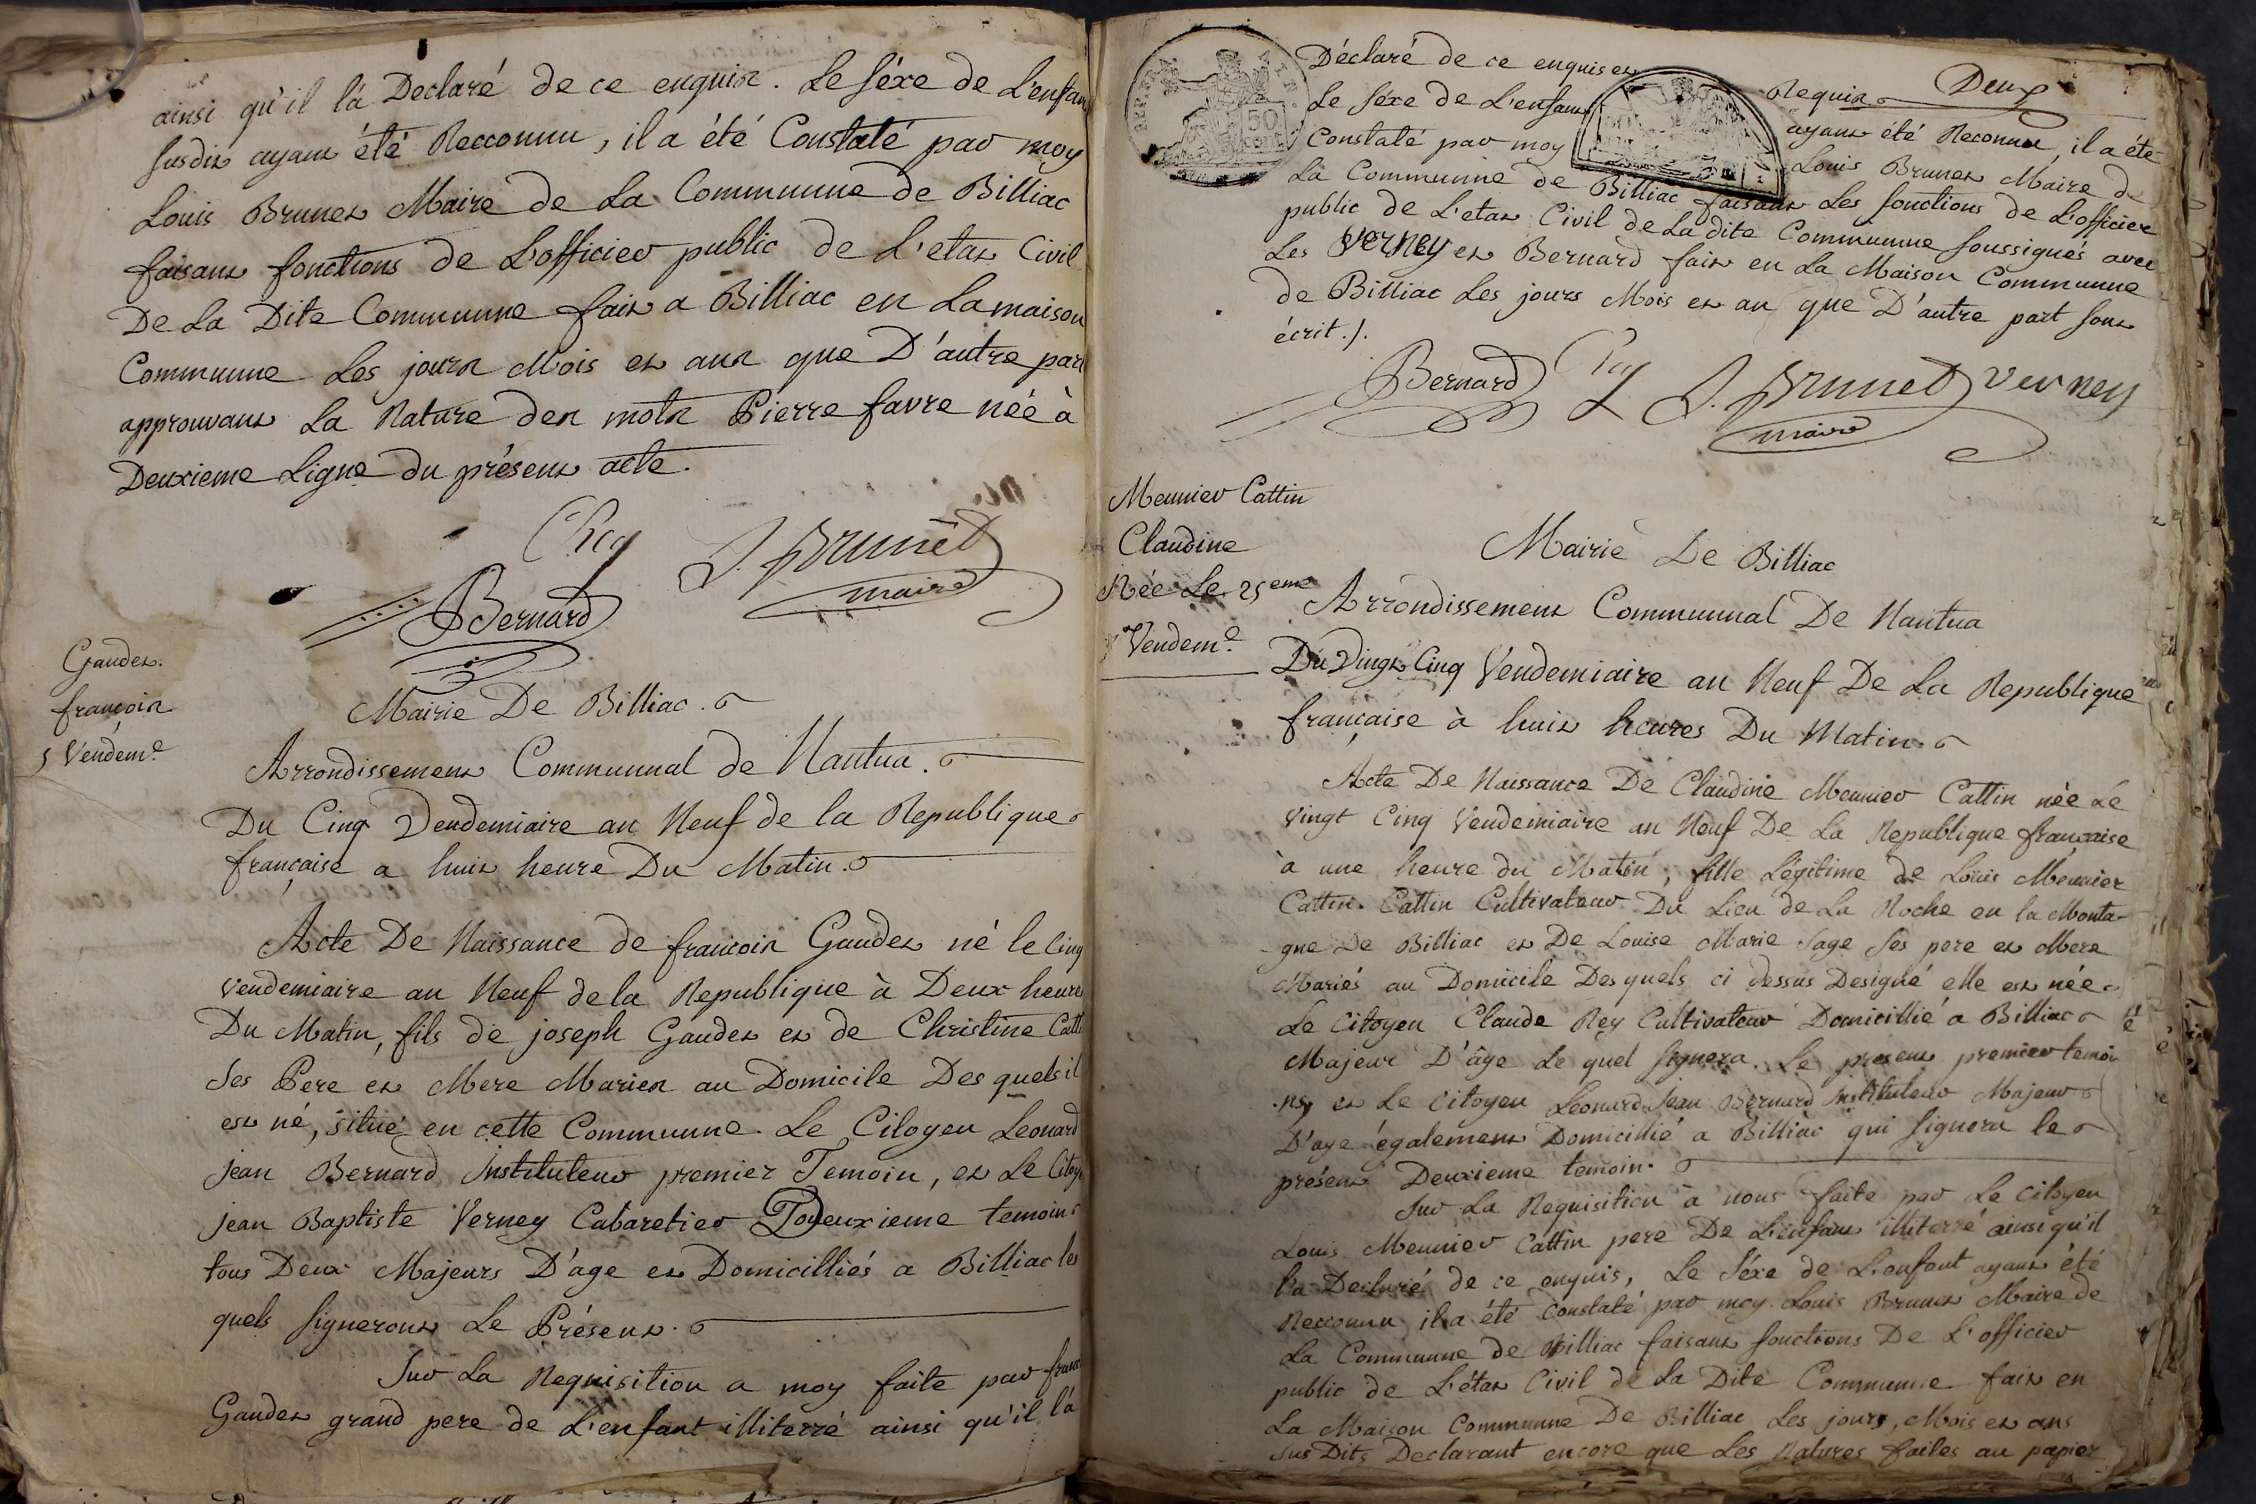 ainsi qu'il l'a Declaré de ce enquis. Le séxe de L'enfant
susdit ayant été Recconnu, il a été Constaté par moy
Louis Brunet Maire de La Commune de Billiac
faisant fonctions de L'officier public de L'etat Civil
De La Dite Commune fait a Billiac en La maison
Commune Les jours Mois et ans que D'autre part
approuvant La Rature des mots Pierre favre née à
Deuxieme Ligne du présent acte.
Rey
L. Brunet
maire
Bernard
Gaudet.
françois
5 Vendem.e
Mairie De Billiac.
Arrondissement Communal de Nantua.
Du Cinq Vendemiaire an Neuf de la Republique
française a huit heure Du Matin.
Acte De Naissance de françois Gaudet né le Cinq
Vendemiaire an Neuf de la Republique à Deux heures
Du Matin, fils de joseph Gaudet et de Christine
Ses Pere et Mere Mariés au Domicile Des quels il
est né, situé en cette Commune. Le Citoyen Leonard
jean Bernard Instituteur premier Temoin, et Le
jean Baptiste Verney Cabaretier Deuxieme temoin
tous Deux Majeurs D'age et Domicilliés a Billiac les
quels signeront Le Présent.
Sur La Requisition a moy faite par
Gaudet grand pere de L'enfant illiterré ainsi qu'il l'a
Deux
Déclaré de ce enquis et Requis
Le séxe de L'enfant ayant été Reconnu, il a été
Constaté par moy Louis Brunet Maire de
La Commune de Billiac faisant Les fonctions de L'officier
public de L'etat Civil de La dite Commune soussignés avec
Les Verney et Bernard fait en La Maison Commune
de Billiac Les jours Mois et an que D'autre part sont
écrit./.
Bernard Rey L. Brunet Verney
maire
Meunier Cattin
Claudine
Née Le 25eme
Vendem.e
Mairie De Billiac
Arrondissement Communal De Nantua
Du Vingt Cinq Vendemiaire an Neuf De La Republique
française à huit heures Du Matin.
Acte De Naissance De Claudine Meunier Cattin née Le
Vingt Cinq Vendemiaire an Neuf De La Republique française
à une heure du Matin, fille Légitime de Louis Meunier
Cattin. Cattin Cultivateur Du Lieu de La Roche en la Monta-
-gne De Billiac et De Louise Marie Sage Ses pere et Mere
Mariés au Domicile Des quels ci dessus Designé elle est née.
Le Citoyen Claude Rey Cultivateur Domicillié a Billiac
Majeur D'âge Le quel signera Le present premier temoi
-n, et Le Citoyen Leonard Jean Bernard Instituteur Majeur
D'age également Domicillié a Billiac qui signera le
présent Deuxieme temoin.
Sur La Requisition à nous faite par Le Citoyen
Louis Meunier Cattin pere De L'enfant illiterré ainsi qu'il
l'a Declaré de ce enquis, Le Séxe de L'enfant ayant été
Recconnu il a été Constaté par moy Louis Brunet Maire de
La Commune de Billiac faisant fonctions De L'officier
public de L'état Civil de La Dite Commune fait en
La Maison Commune De Billiac Les jours, Mois et ans
sus Dits Declarant encore que Les Ratures faites au papier